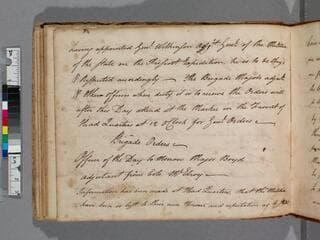 having appointed Genl. Wilkinson Adjt. Genl. of the Militia
of the State on the Present Expedition, he is to be Obey'd
& respected accordingly — The Brigade Majors adjuts.
& Other officers whose duty it is to receive the Orders will
after this Day attend at the Marker in the Front of
Head Quarters at 12 oClock for Genl. Orders
Brigade Orders
Officer of the Day to Morrow Major Boyd
adjutant from Colo. McElroy
Information has been made at Head Quarters, that the Militia
have been